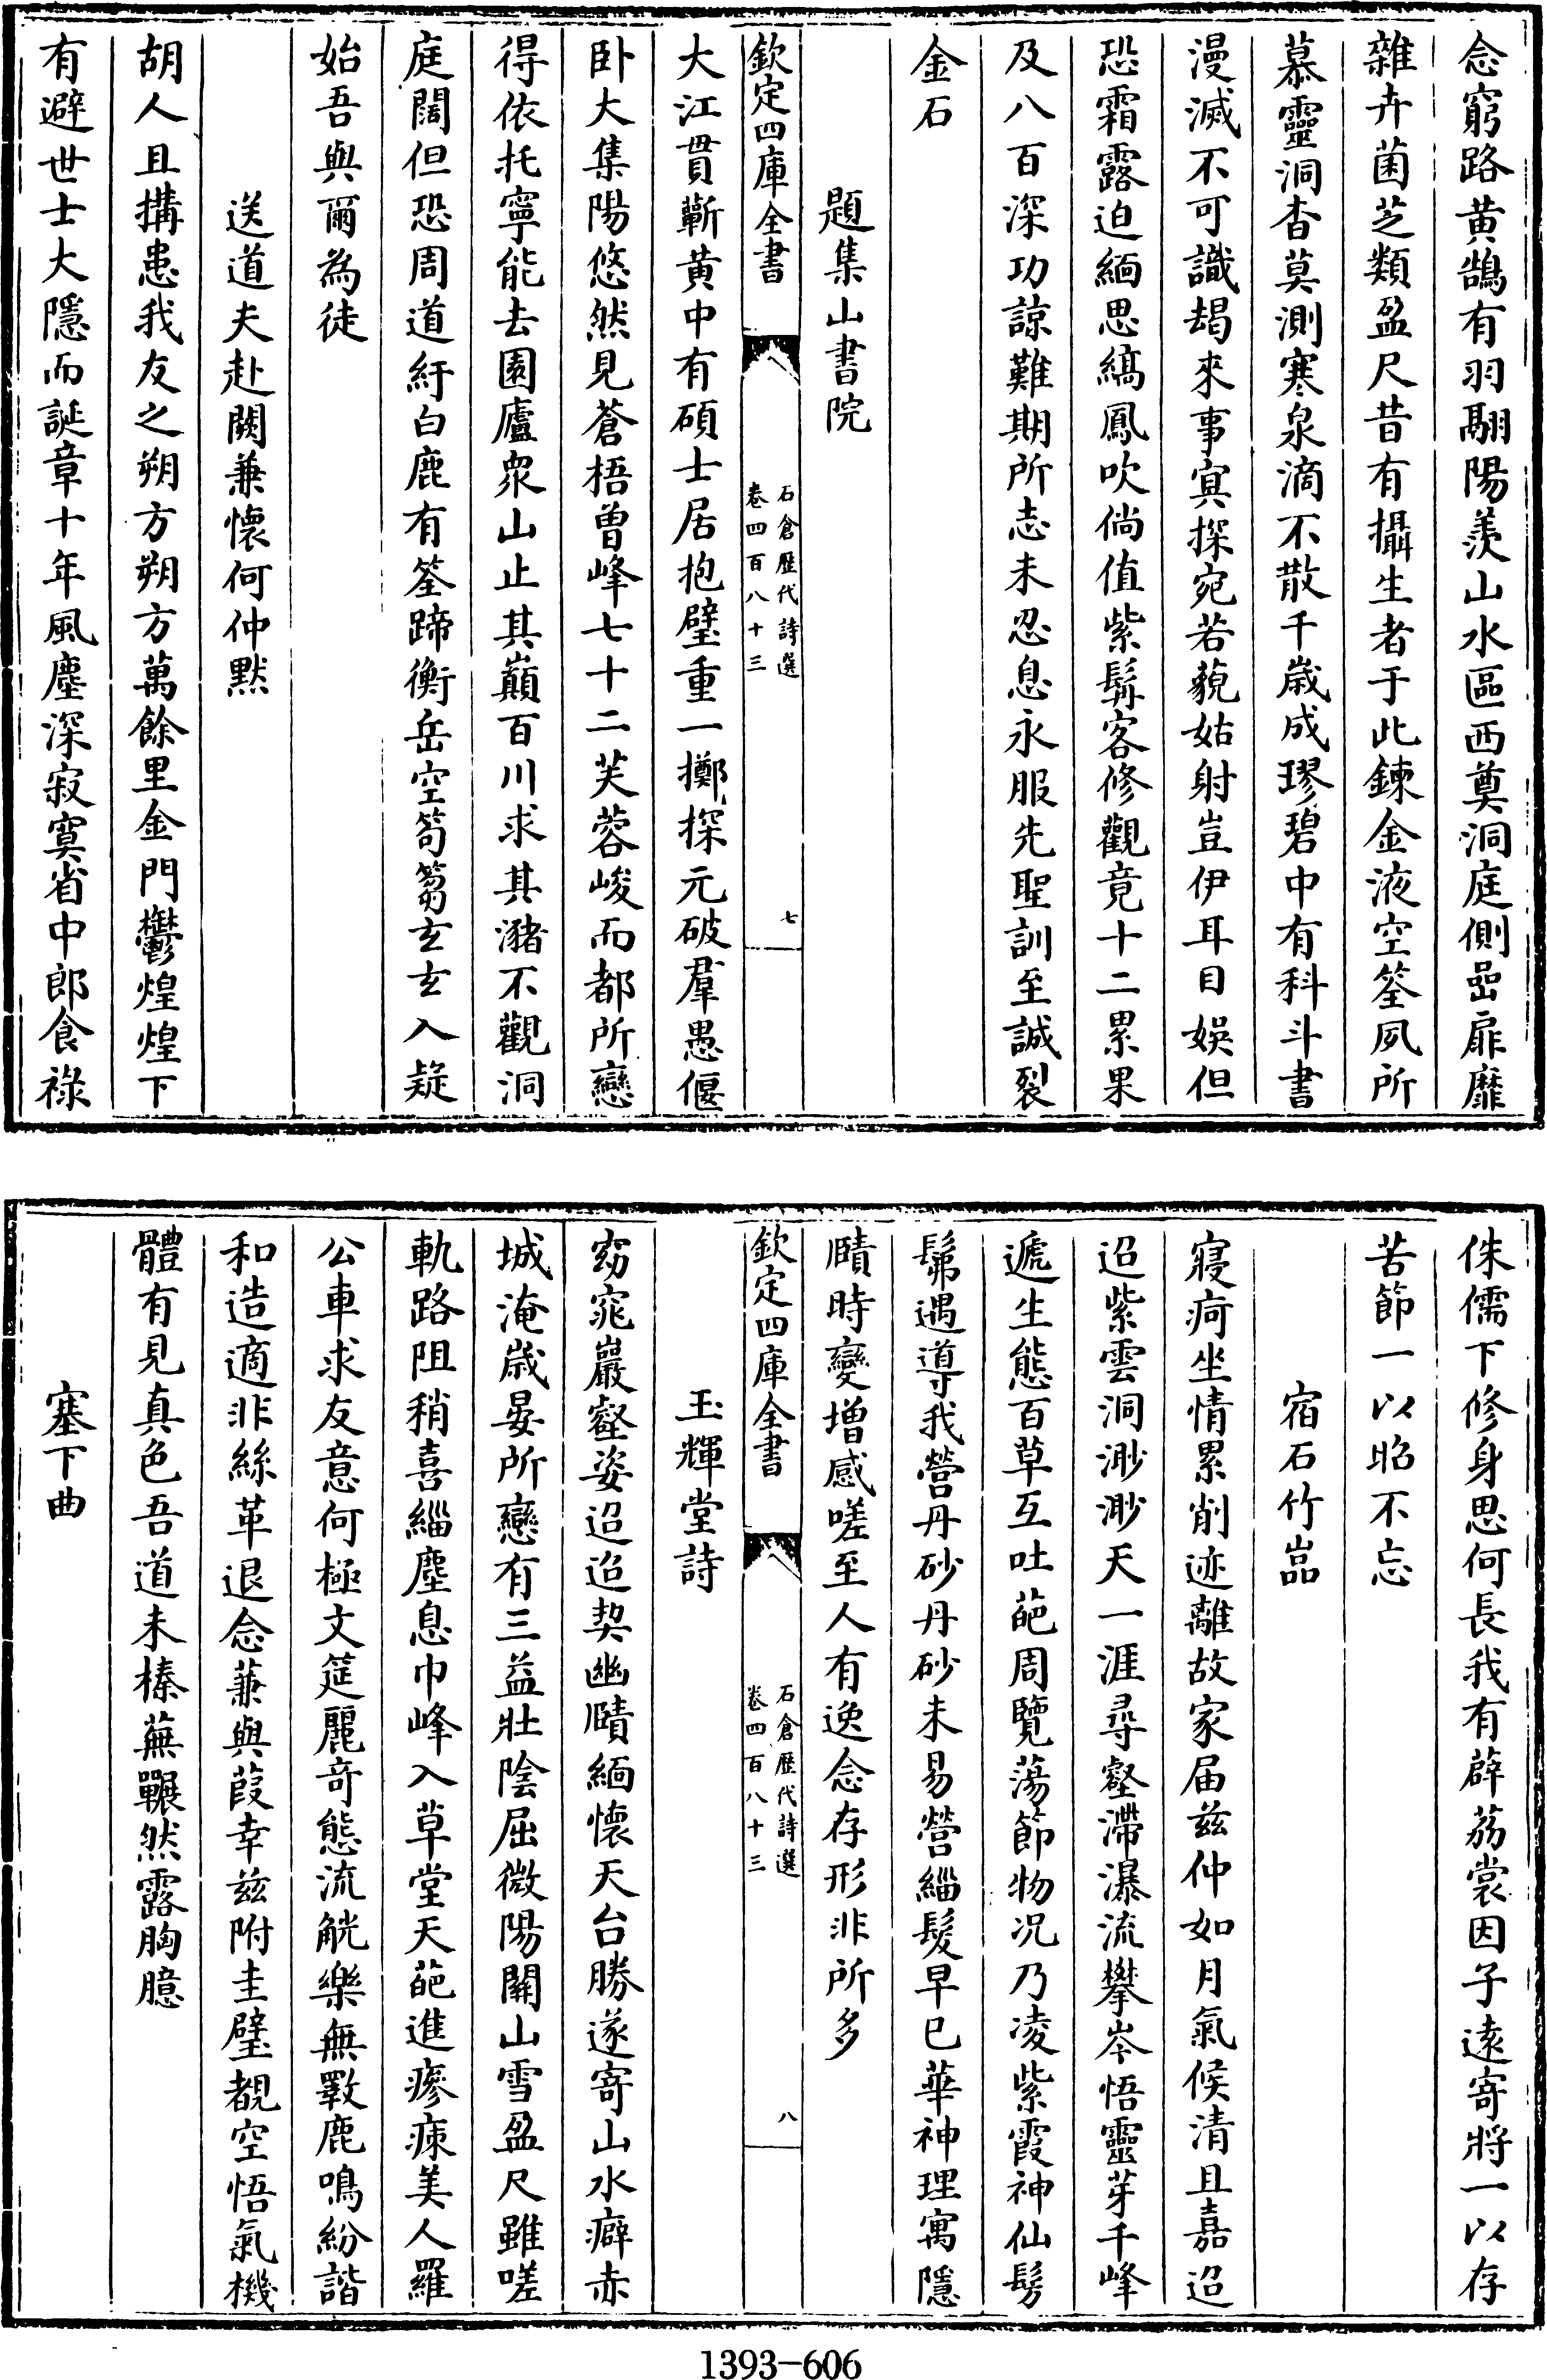 念窮路黄鵠有羽翮陽羡山水區西奠洞庭側嵒扉靡
雜卉菌芝類盈尺昔有攝生者于此鍊金液空筌夙所
慕靈洞杳莫測寒泉滴不散千歳成璆碧中有科斗書
漫滅不可識朅來事寘探宛若藐姑射豈伊耳目娱但
恐霜露迫緬思緱鳳吹倘值紫髯客修觀竟十二累果
及八百深功諒難期所志未忍息永服先聖訓至誠裂
金石
題集山書院
欽定四庫全書
石倉歷代詩選
卷四百八十三
七
大江貫蘄黄中有碩士居抱璧重一擲探元破羣愚偃
卧大集陽悠然見蒼梧曾峰七十二芙蓉峻而都所戀
得依托寧能去園廬衆山止其巔百川求其瀦不觀洞
庭闊但恐周道紆白鹿有筌蹄衡岳空芶蒭玄玄入疑
始吾與爾為徒
送道夫赴闕兼懷何仲默
胡人且搆患我友之朔方朔方萬餘里金門鬱煌煌下
有避世士大隱而誕章十年風塵深寂寞省中郎食祿
侏儒下修身思何長我有薜荔裳因子遠寄將一以存
苦節一以昭不忘
宿石竹嵓
寢疴坐情累削迹離故家届兹仲如月氣候清且嘉迢
迢紫雲洞渺渺天一涯尋壑滯瀑流攀岑悟靈芽千峰
遞生態百草互吐葩周覽蕩節物况乃凌紫霞神仙髣
髴遇導我營丹砂丹砂未易營緇髮早已華神理寓隱
賾時變增感嗟至人有逸念存形非所多
欽定四庫全書
石倉歷代詩選
卷四百八十三
八
玉輝堂詩
窈窕巖壑姿迢迢契幽賾緬懷天台勝遂寄山水癖赤
城淹歳晏所戀有三益壯陰屈微陽關山雪盈尺雖嗟
軌路阻稍喜緇塵息巾峰入草堂天葩進瘮瘝美人羅
公車求友意何極文筵麗奇態流觥樂無斁鹿鳴紛諧
和造適非絲革退念蒹與葭幸兹附圭璧覩空悟氣機
體有見真色吾道未榛蕪囅然露胸臆
塞下曲
1393-606